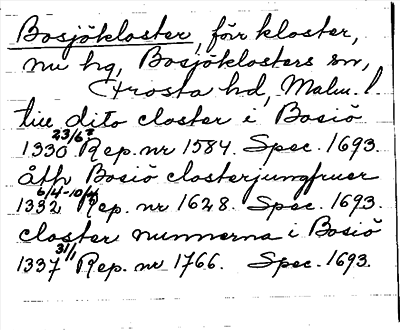 Bosjökloster, förr kloster,
nu hg, Bosjöklosters sn,
Frosta hd, Malm. l.
till dito closter i Bosiö
1330 23/6 Rep. nr 1584. Spec. 1693.
åth Bosiö closterjungfruer
1332 6/4-10/4 Rep. nr 1628. Spec. 1693.
closter nunnerna i Bosiö
1337 31/1 Rep. nr 1766. Spec. 1693.